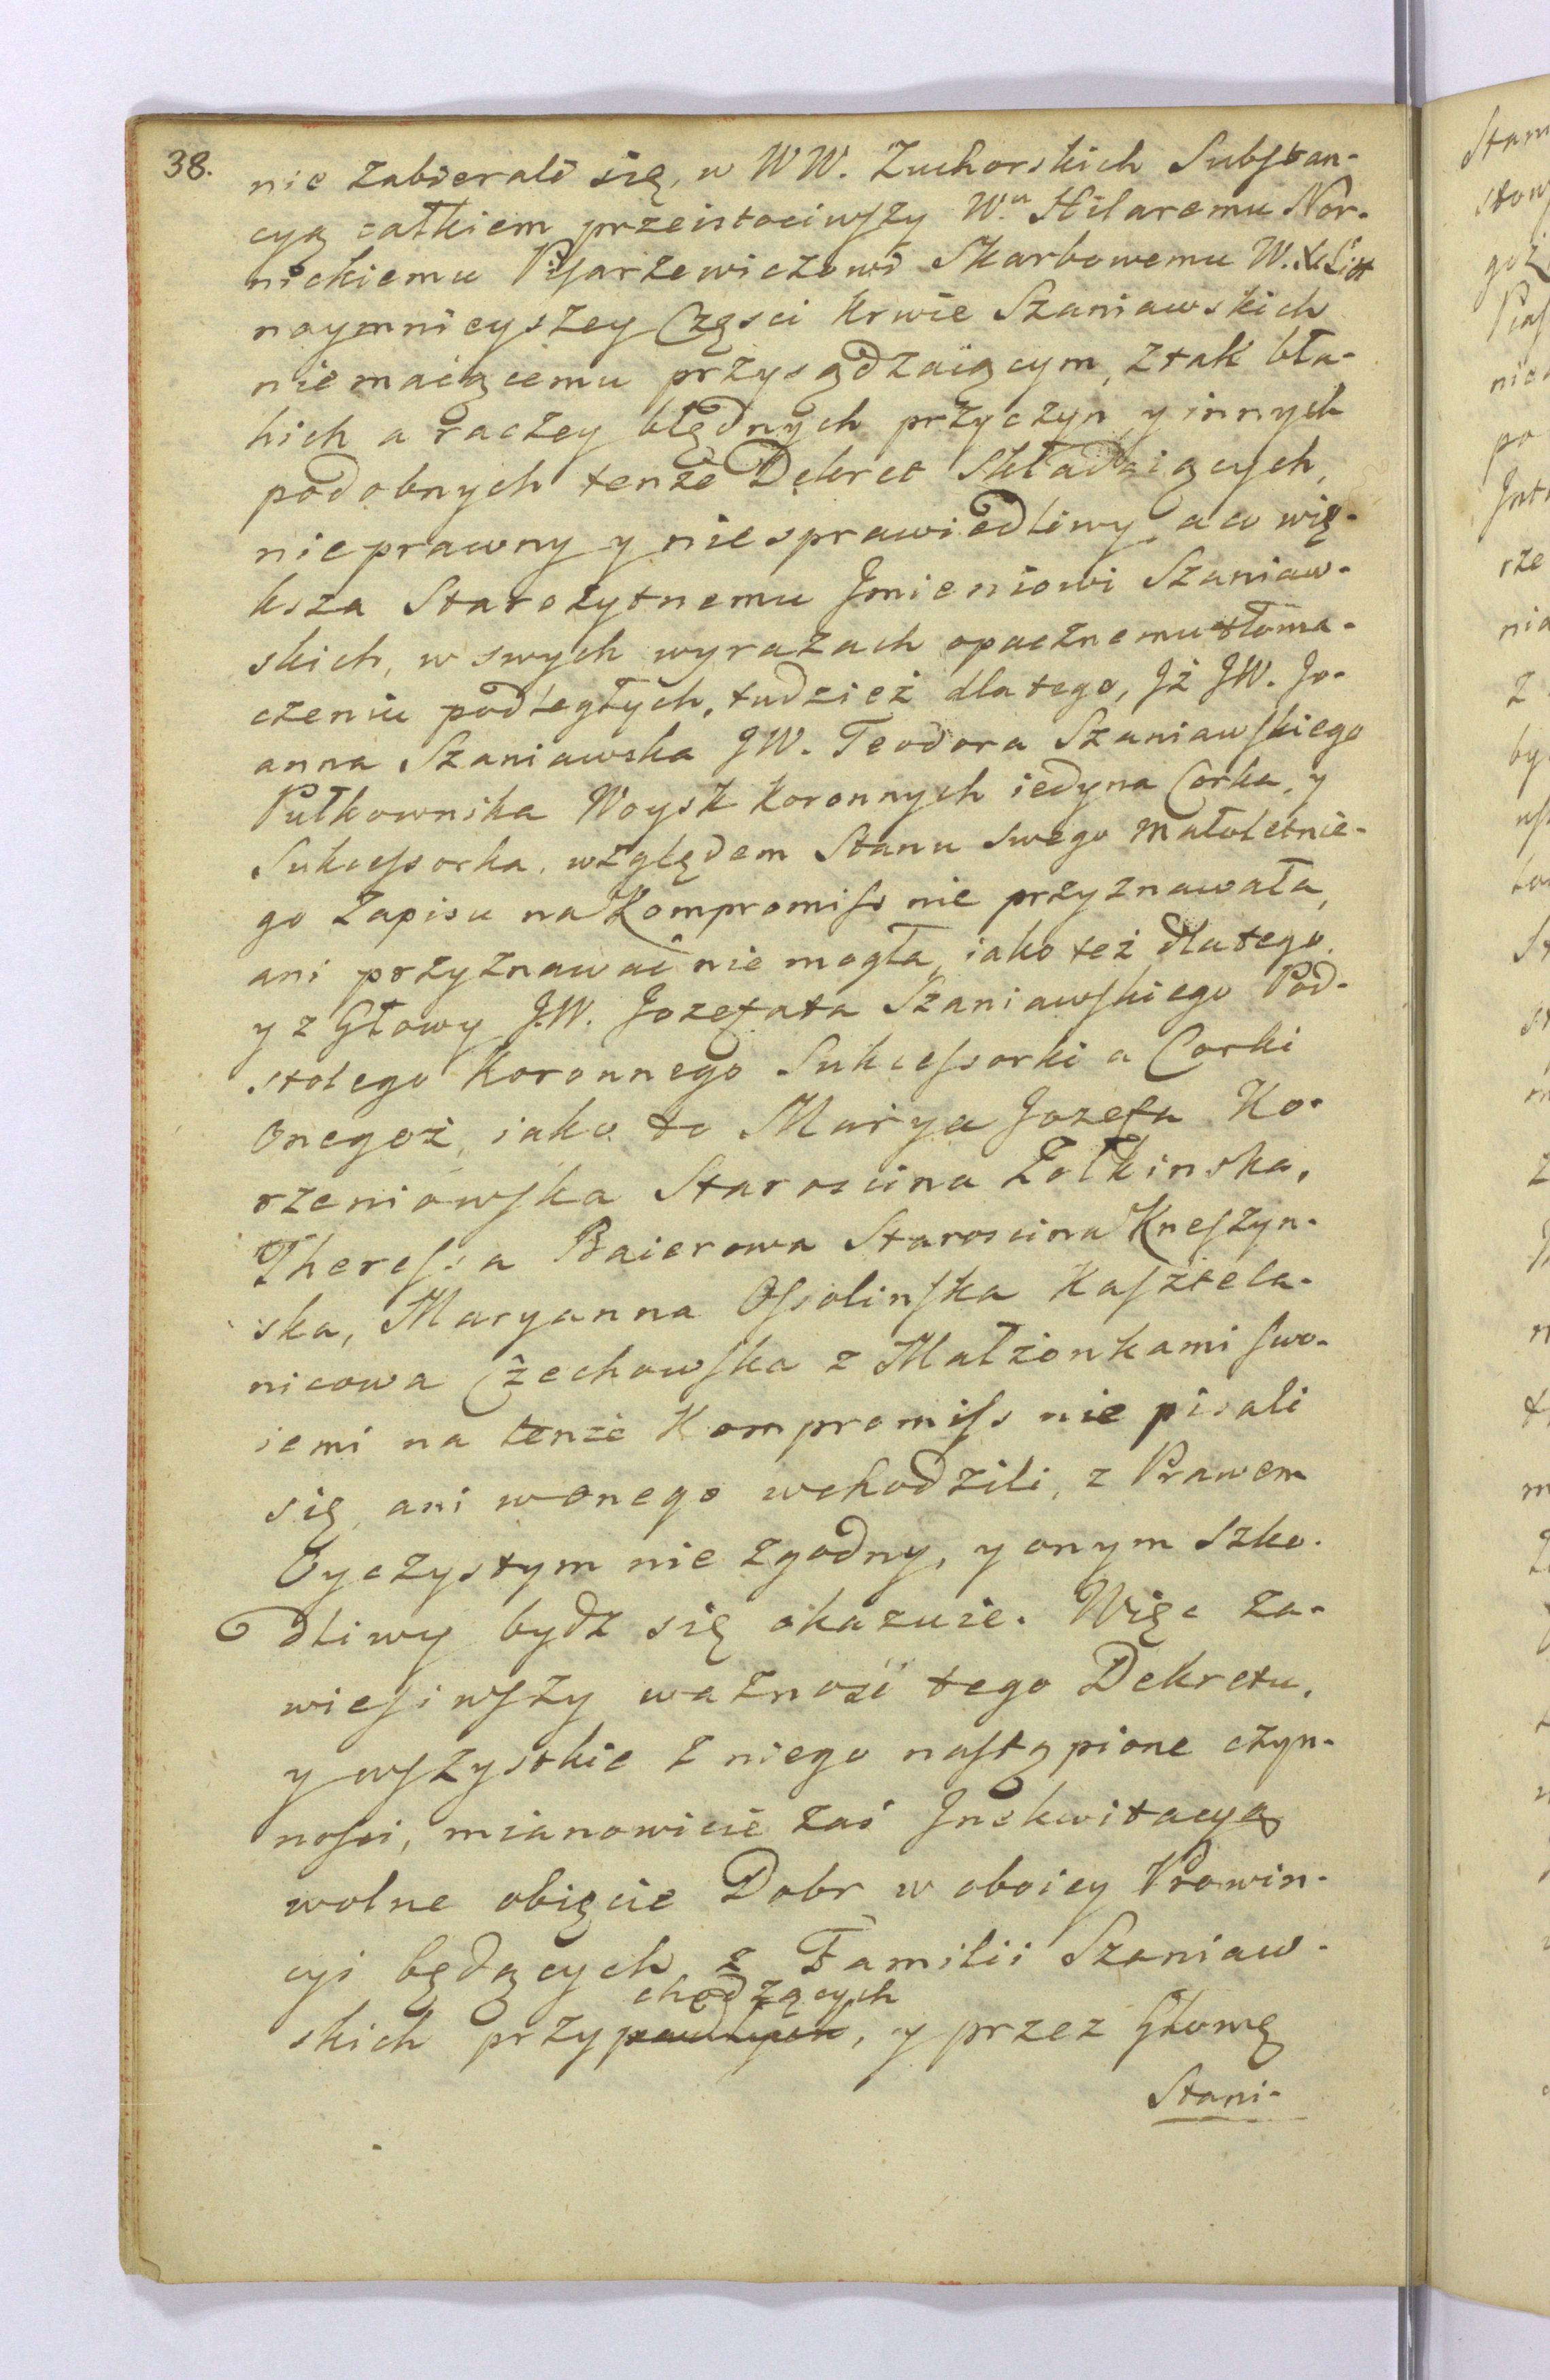 38.
nie zabierali się, w WW. Zuchorskich Substan-
cyą całkiem przeistocziwszy W.u Hilaremu Nor-
nickiemu Pisarzewiczowi Skarbowemu W. X. Litt
naymnieyszey Częsci Krwie Szaniawskich
niemaiącemu przysądzaiącym, z tak bła-
hich a raczey błędnych przyczyn y innych
podobnych tenże Dekret składaiących,
nieprawny y niesprawiedliwy, a co wię-
ksza Starożytnemu Jmieniowi Szaniaw-
skich, w swych wyrazach opacznemu tłoma-
czeniu podległych, tudzież dla tego, Jż JW. Jo-
anna Szaniawska JW. Teodora Szaniawskiego
Pułkownika Woysk koronnych iedyna Corka, y
Sukcessorka, względem Stanu swego małoletnie-
go Zapisu na Kompromiss nie przyznawała,
ani przyznawać nie mogła, iako też dla tego.
y z Głowy J.W. Jozefata Szaniawskiego Pod-
stolego Koronnego Sukcessorki a Corki
Onegoż, iako to Marya Jozefa Ko-
rzeniowska Staroscina Zołkinska,
Theressa Baierowa Staroscina Kneszyn-
ska, Maryanna Ossolinska Kasztela-
nicowa Czechowska z Małżonkami swo-
iemi na tenże Kompromiss nie pisali
się, ani w onego wchodzili, z Prawem
Oyczystym nie zgodny, y onym szko-
dliwy bydz się okazuie. Więc za-
wiesiwszy ważność tego Dekretu,
y wszystkie z niego nastąpione czyn-
nosci, mianowicie zaś Jnekwitacyą
wolne obięcie Dobr w oboiey Prowin-
cyi będących z Familii Szaniaw-
chodzących
skich przypadłych, y przez Głowę
Stani-